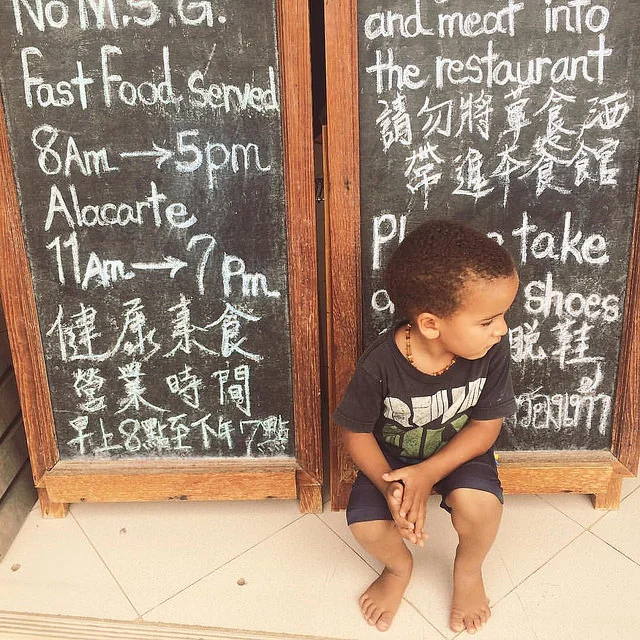 No M.S.G.
Fast Food Served
8Am → 5pm
Alacarte
11Am → 7pm
健康素食
營業時間
早上8點至下午7點
and meat into
the restaurant
請勿將葷食、酒
帶進本食館
take
shoes
脫鞋